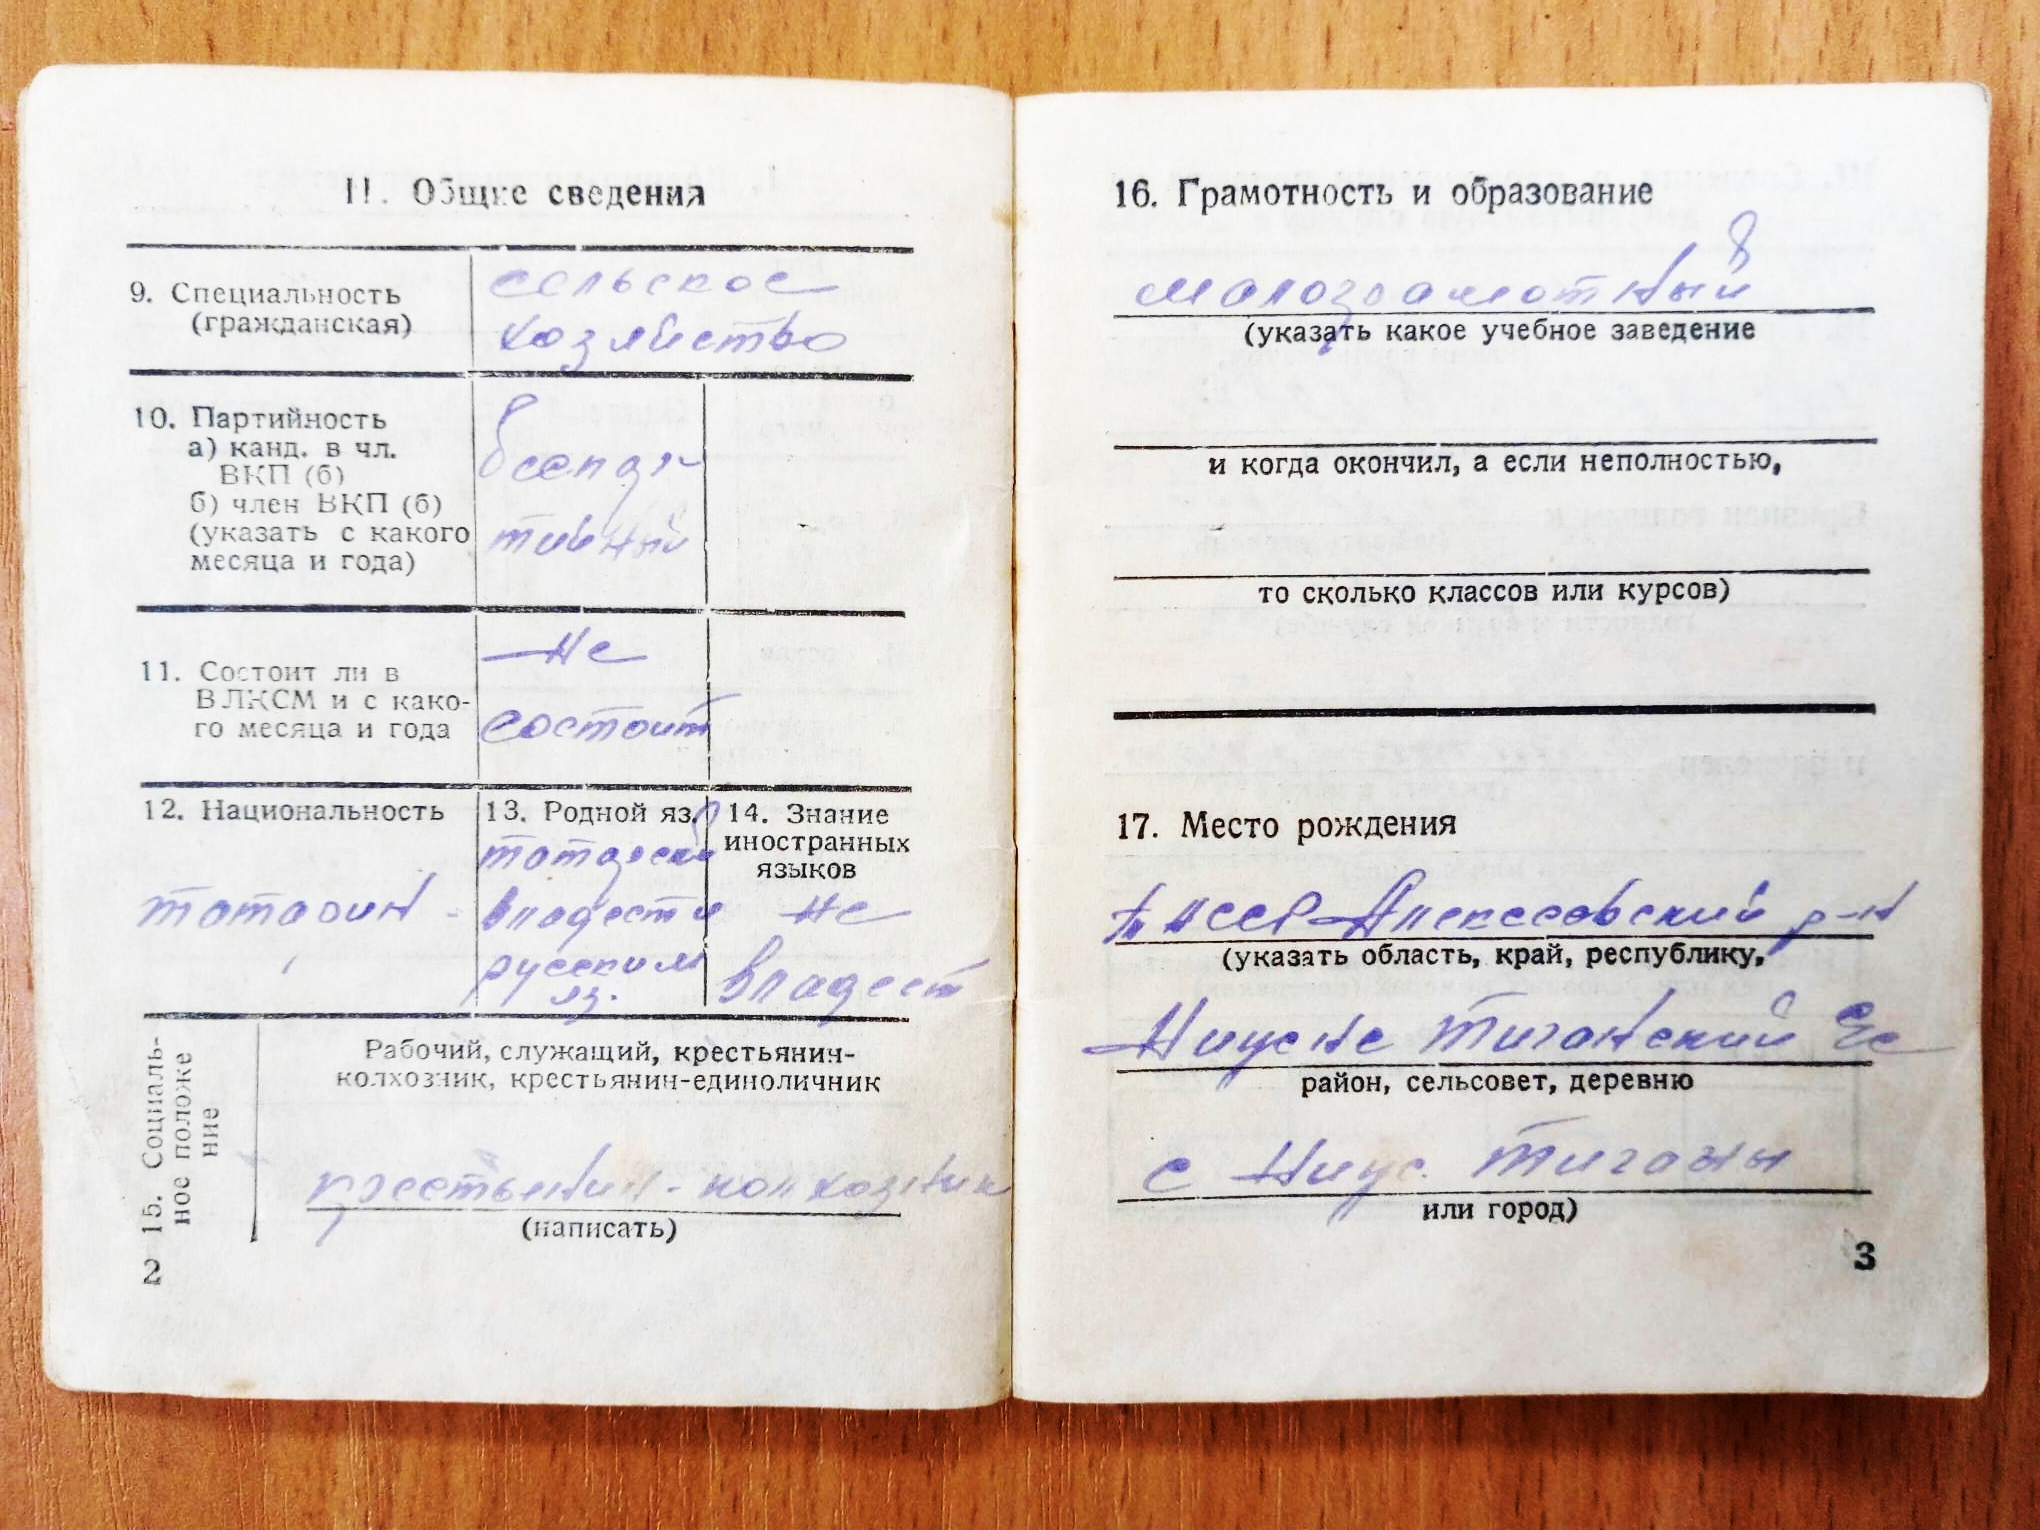 II. Общие сведения
9. Специальность
(гражданская)
сельское
хозяйство
10. Партийность
а) канд. в чл.
ВКП (б)
б) член ВКП (б)
(указать с какого
месяца и года)
беспар-
тийный
11. Состоит ли в
ВЛКСМ и с како-
го месяца и года
не
состоит
12. Национальность
татарин
13. Родной яз.
татарский
владеет
русским
яз.
14. Знание
иностранных
языков
не
владеет
15. Социаль-
ное положе
ние
Рабочий, служащий, крестьянин-
колхозник, крестьянин-единоличник
крестьянин-колхозник
(написать)
2
16. Грамотность и образование
малограмотный
(указать какое учебное заведение
и когда окончил, а если неполностью,
то сколько классов или курсов)
17. Место рождения
ТАССР Алексеевский р-н
(указать область, край, республику,
Тиганский
район, сельсовет, деревню
с Тиганы
или город)
3